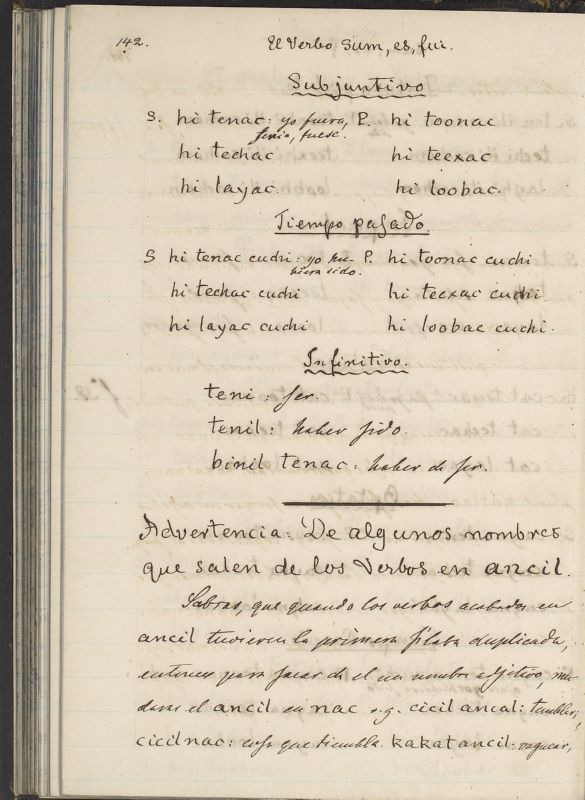 142.
El Verbo Sum, es, fui.
Subjuntivo
S. hi tenac: yo fuera, P. hi toonac
seria, fuese.
hi techac hi teexac
hi layac. hi loobac.
Tiempo pasado.
S hi tenac cuchi: yo hu- P. hi toonac cuchi
biera sido.
hi techac cuchi hi teexac cuchi
hi layac cuchi hi loobac cuchi.
Infinitivo.
teni: ser.
tenil: haber sido
binil tenac: haber de ser.
Advertencia: De algunos nombres
que salen de los Verbos en ancil.
Sabras, que quando los verbos acabados en
ancil tuvieren la primera silaba duplicada,
entonces para sacar de el un nombre adjetivo, mu-
daras el ancil en nac v.g. cicil ancal: temblar;
cicilnac: cosa que tiembla. kakatancil: vaguear,